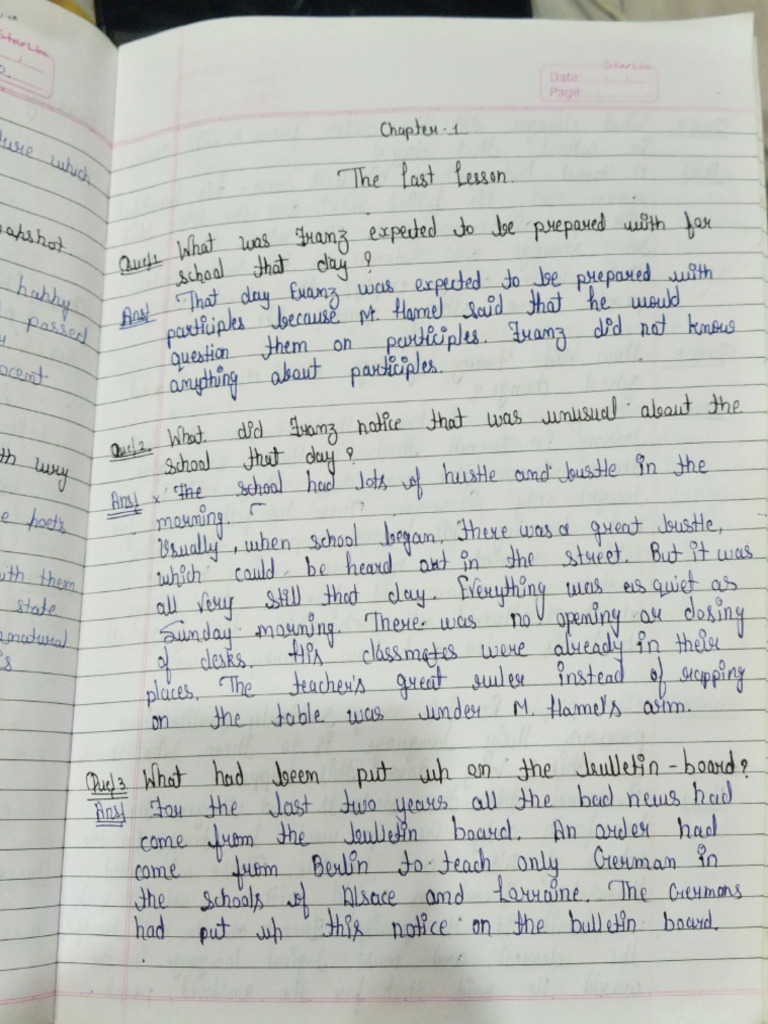 StarLine
Date:
Page:
Chapter-1
The Last Lesson.
Ques1 What was Franz expected to be prepared with for
school that day?
Ans1 That day Franz was expected to be prepared with
participles because M. Hamel said that he would
question them on participles. Franz did not know
anything about participles.
Ques2 What did Franz notice that was unusual about the
school that day?
Ans1 x The school had lots of hustle and bustle in the
morning.
Usually, when school began. There was a great bustle,
which could be heard out in the street. But it was
all very still that day. Everything was as quiet as
Sunday morning. There was no opening or closing
of desks. His classmates were already in their
places. The teacher's great ruler instead of rapping
on the table was under M. Hamel's arm.
Ques3 What had been put up on the bulletin-board?
Ans1 For the last two years all the bad news had
come from the bulletin board. An order had
come from Berlin to teach only German in
the schools of Alsace and Lorraine. The Germans
had put up this notice on the bulletin board.
which
snapshot.
happy
passed
ocent
th wry
e poets
with them
state